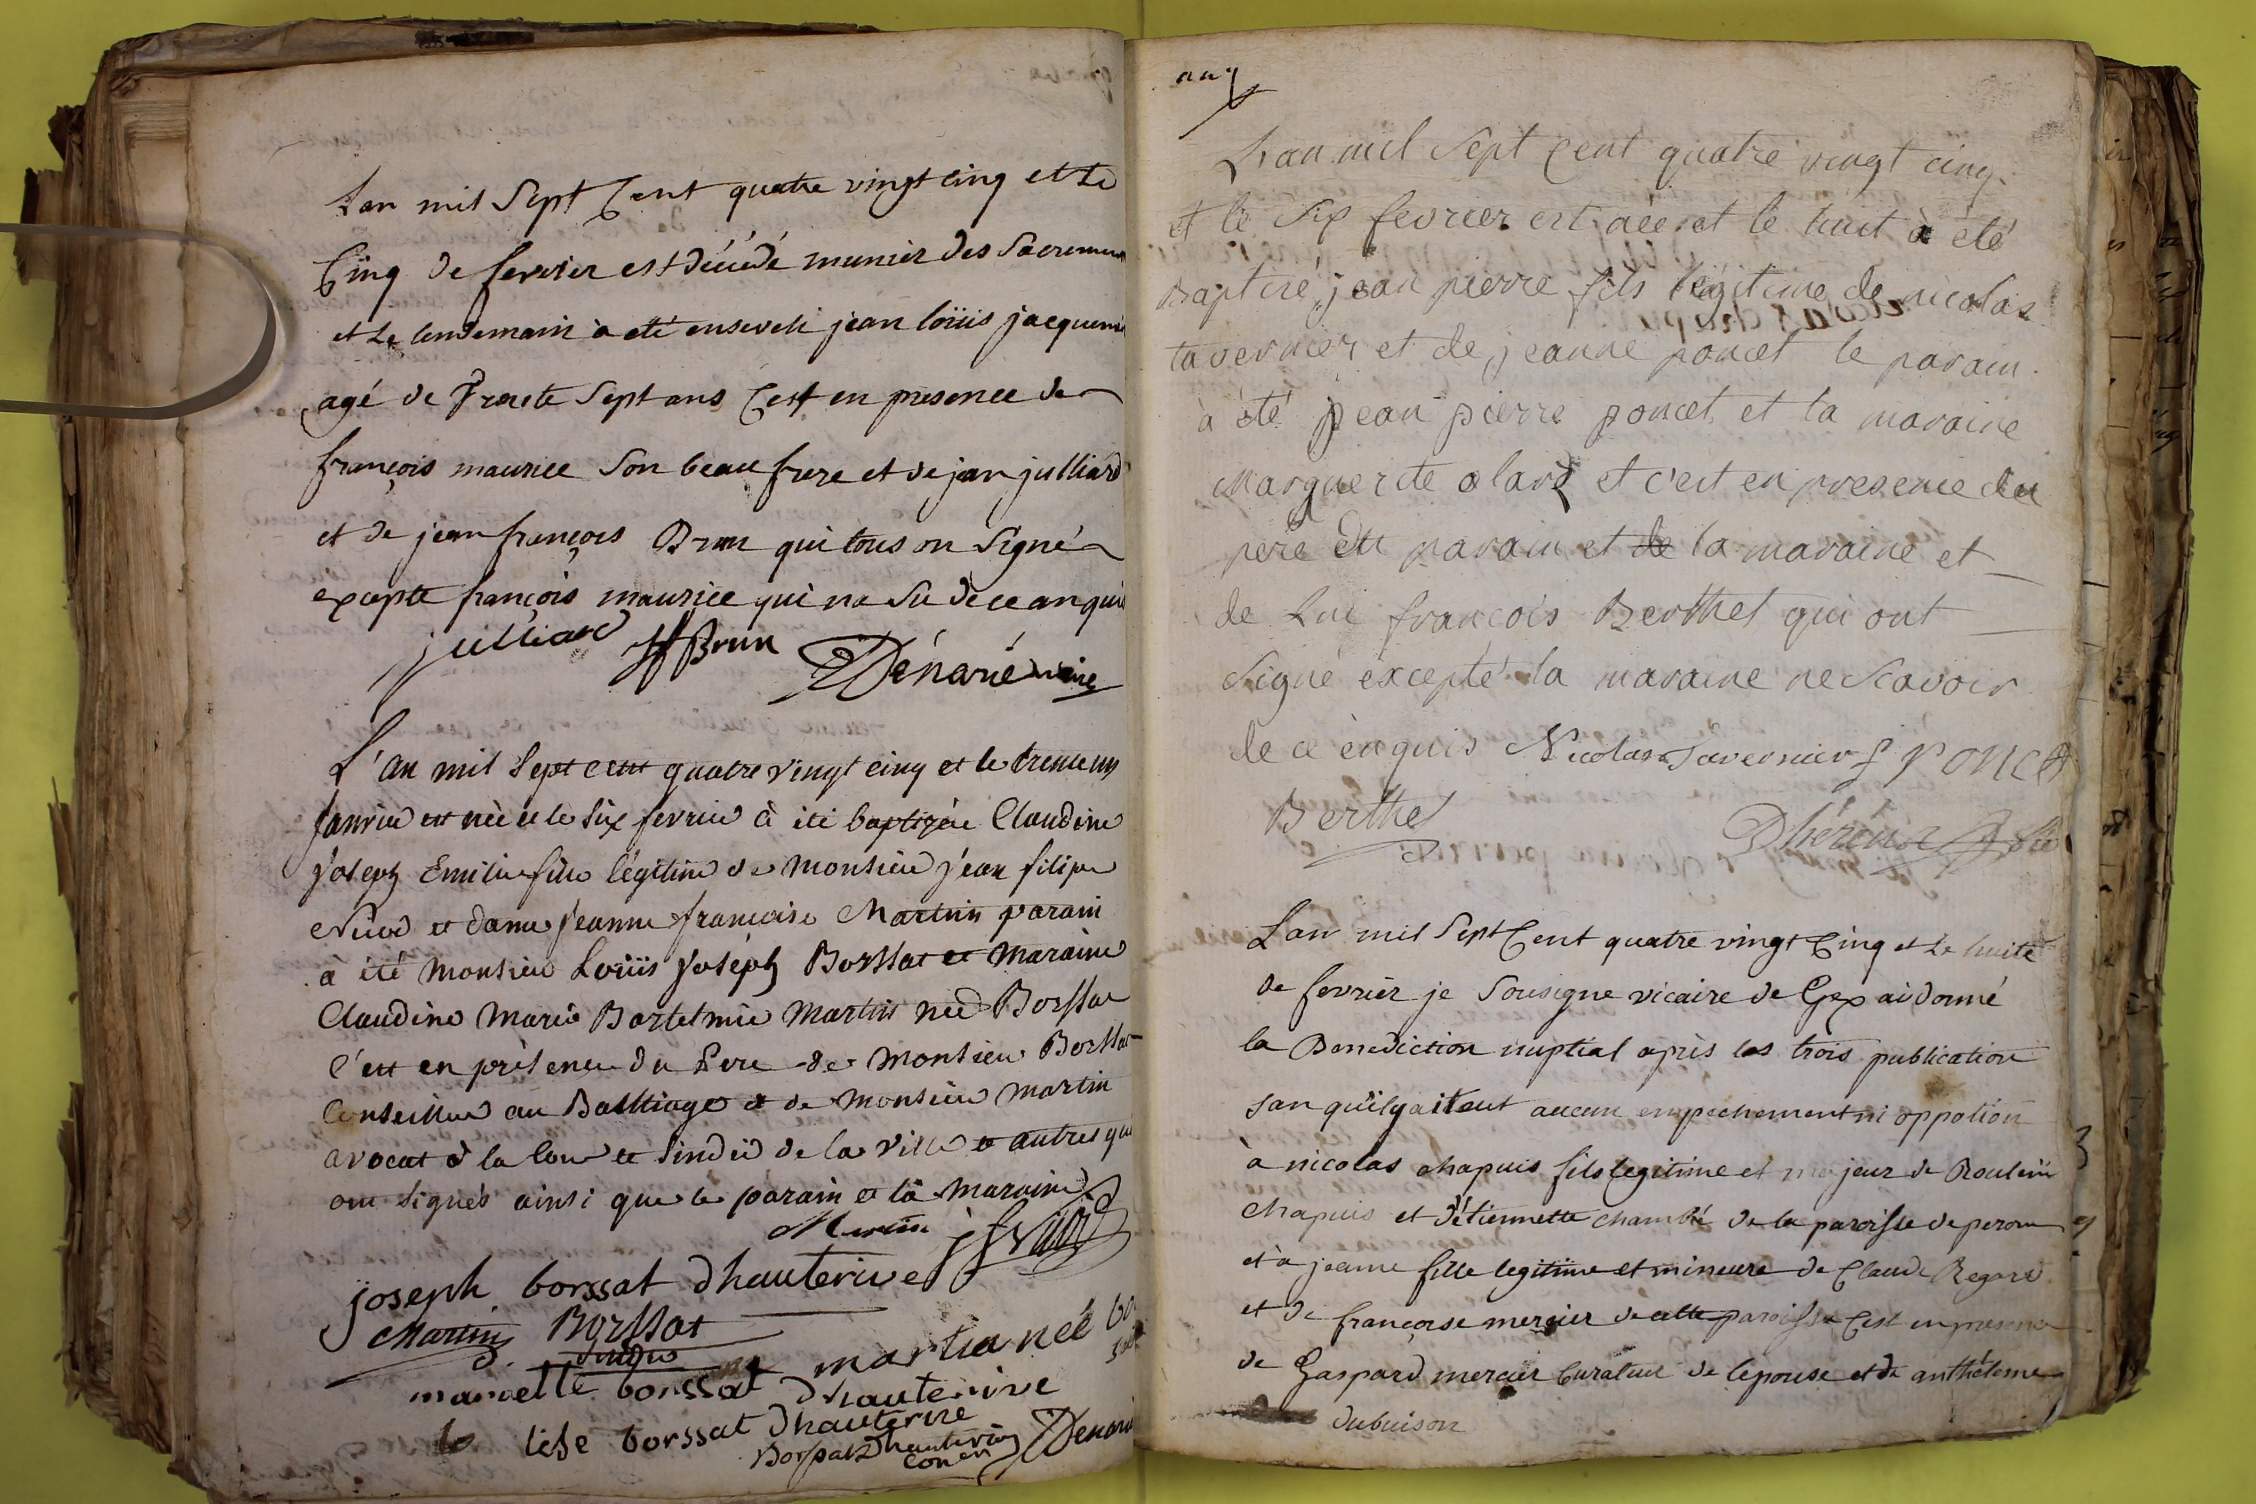 Lan mil Sept Cent quatre vingt cinq et Le
Cinq de fevrier est décédé munier des Sacremen
et Le lendemain à été enseveli jean loüis jacquemi
agé de Trente Sept ans C'est en presence de
françois maurice Son beau frere et de jean julliard
et de jean françois Brun qui tous on Signé
excepte françois maurice qui na Sü de ce anquis
julliard JfBrun Dénarié vicaire
L'an mil Sept cent quatre vingt cinq et le trente un
Janvier est née et le Six fevrier à été baptizée Claudine
Joseph Emilie fille légitime de Monsieur Jean filipe
et dame Jeanne francoise Martin parain
à été Monsieur Loüis Joséph Borssat et Maraine
Claudine Marie Bartelmie Martin née Borssat
C'est en présence du Pere de Monsieur Borssat
Conseiller au Balliage et de Monsieur Martin
avocat à la Cour et Sindic de la Ville et autres qui
ont Signés ainsi que le parain et la Maraine
joseph borssat dhauterive
Martin Borssat
martin née bo
marvelle borssat dhauterive
lise borssat dhauterive
Borssat dhauterive Denarié
Lan mil Sept Cent quatre vingt cinq
et le Six fevrier est née et le huit à été
Baptisé jean pierre fils légitime de nicolas
tavernier et de jeanne poncet le parain
à été jean pierre poncet et la maraine
Marguerite et c'est en presence du
pere du parain et de la maraine et
de Lui françois Berthet qui ont
Signé excepté la maraine ne Scavoir
de ce enquis Nicolas Tavernier J Poncet
Berthet
Lan mil Sept Cent quatre vingt Cinq et Le huite
de fevrier je Sousigne vicaire de Gex ai donné
la Benediction nuptial après les trois publication
san quil y ait eut aucun empechement ni oppotion
à nicolas chapuis fils legitime et majeur de
Chapuis et d'étiennette chambé de la paroisse de peron
et à jeanne fille legitime et mineure de Claude Regard
et de françoise mercier de cette paroisse C'est en presence
de Gaspard mercier Curateur de lepouse et de anthelome
dubuison